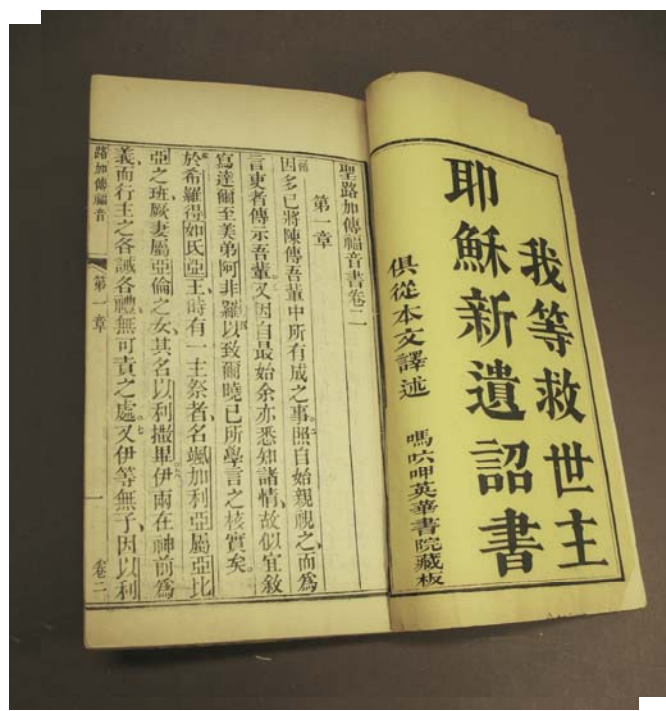 我等救世主
耶穌新遺詔書
俱從本文譯述
嗎㕸呷英華書院藏板
聖路加傳福音書卷二
第一章
因多已將陳傳吾輩中所有成之事照自始親視之而為
言吏者傳示吾輩又因自最始余亦悉知諸情故似宜敘
寫達爾至美弟阿非羅以致爾曉已所學言之核實矣
於希羅得如氏亞王時有一主祭者名颯加利亞屬亞比
亞之班厥妻屬亞倫之女其名以利撒畢伊兩在神前為
義而行主之各誡各禮無可責之處又伊等無子因以利
路加傳福音
第一章
一
卷二